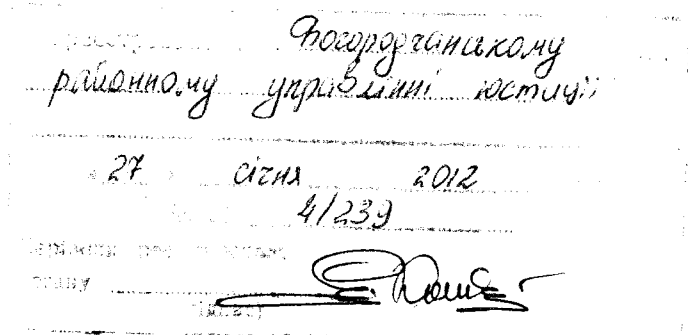 Богородчанському
районному управлінні юстиції
27 січня 2012
4/239